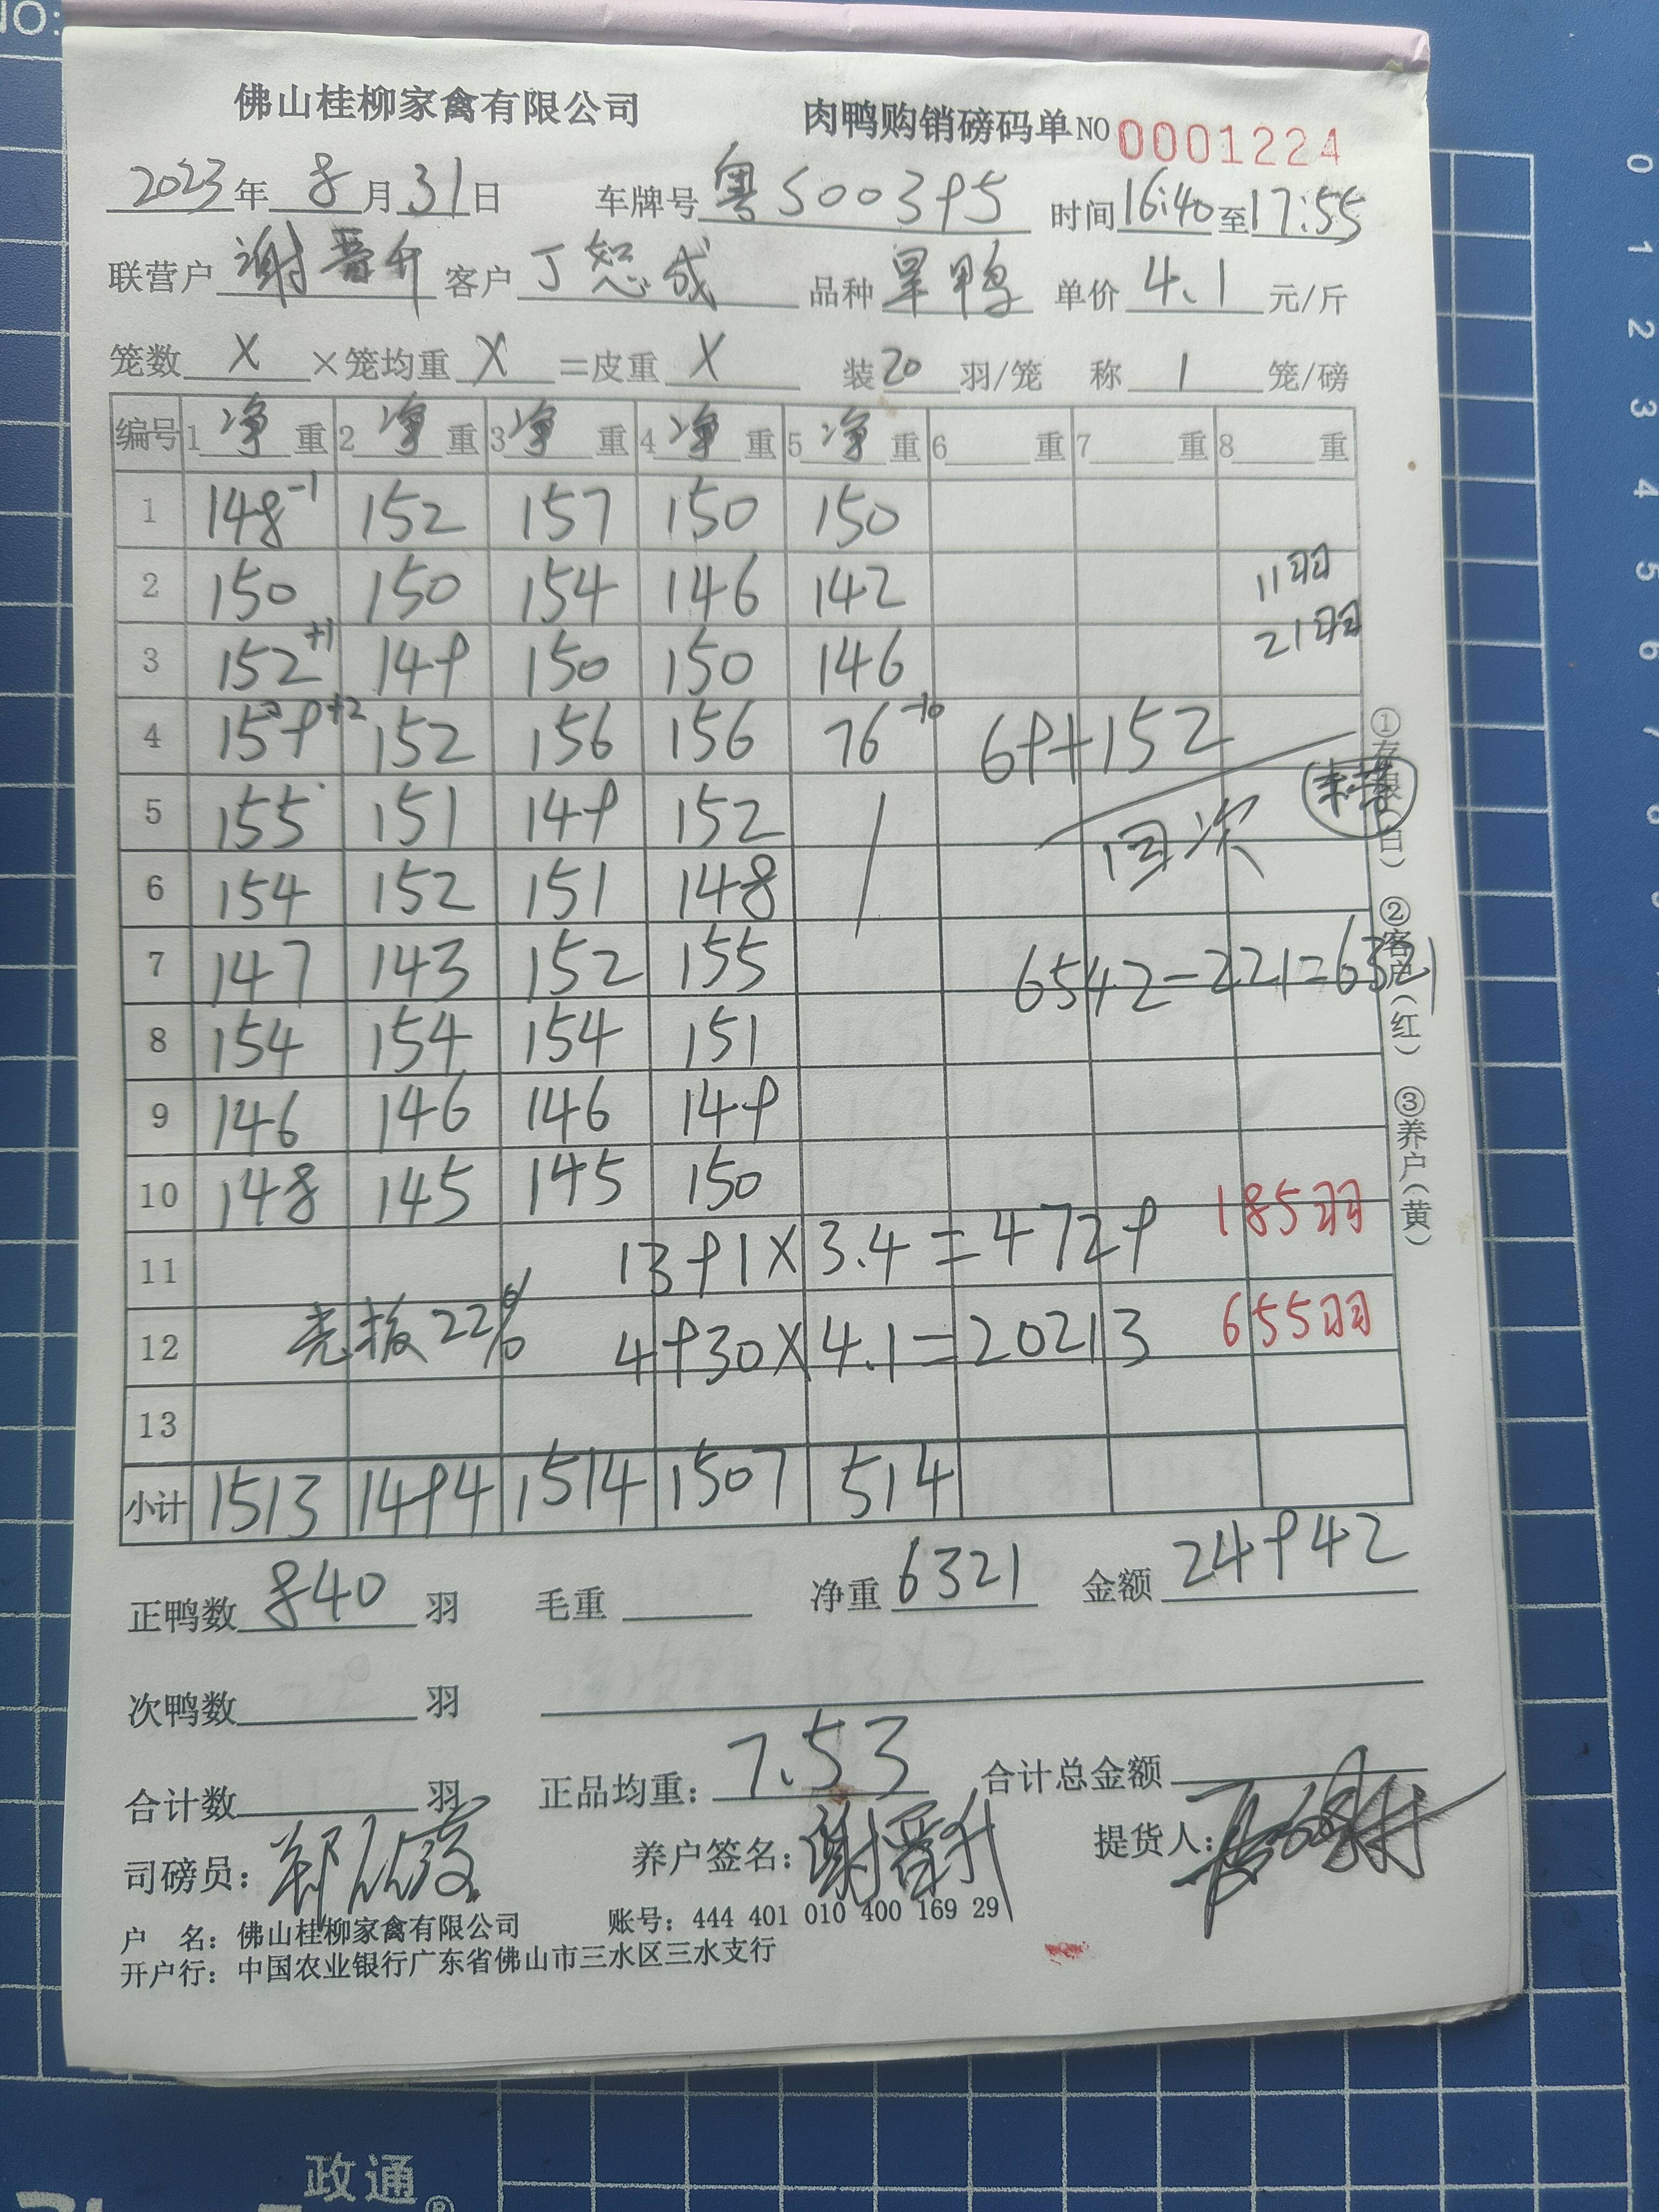 NO:
佛山桂柳家禽有限公司 肉鸭购销磅码单NO 0001224
2023年 8月31日 车牌号 粤S00395 时间16:40至17:55
联营户 谢晋升 客户 丁恕成 品种 旱鸭 单价 4.1 元/斤
笼数 X ×笼均重 X =皮重 X 装20羽/笼 称 1 笼/磅
编号 1净重 2净重 3净重 4净重 5净重 6 重 7 重 8 重
1 148-1 152 157 150 150
2 150 150 154 146 142 11羽
3 152+1 149 150 150 146 21羽
4 159+2 152 156 156 76-10 69+152
5 155 151 149 152 回次
6 154 152 151 148
7 147 143 152 155 6542-221=6321
8 154 154 154 151
9 146 146 146 149
10 148 145 145 150 185羽
11 1391X3.4=4729
12 壳板22% 4930X4.1=20213 655羽
13
小计 1513 1494 1514 1507 514
正鸭数 840 羽 毛重 净重 6321 金额 24942
次鸭数 羽
合计数 羽 正品均重: 7.53 合计总金额
司磅员: 养户签名: 谢晋升 提货人:
户 名: 佛山桂柳家禽有限公司 账号: 444 401 010 400 169 29
开户行: 中国农业银行广东省佛山市三水区三水支行
①存根(白) ②客户(红) ③养户(黄)
0
1
2
3
4
5
6
7
8
政通®